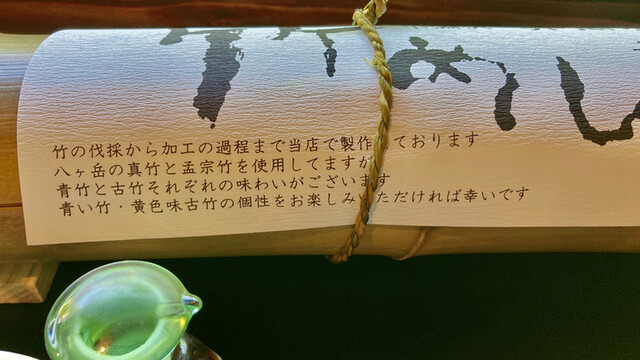 竹めし
竹の伐採から加工の過程まで当店で製作しております
八ヶ岳の真竹と孟宗竹を使用してますが
青竹と古竹それぞれの味わいがございます
青い竹・黄色味古竹の個性をお楽しみいただければ幸いです